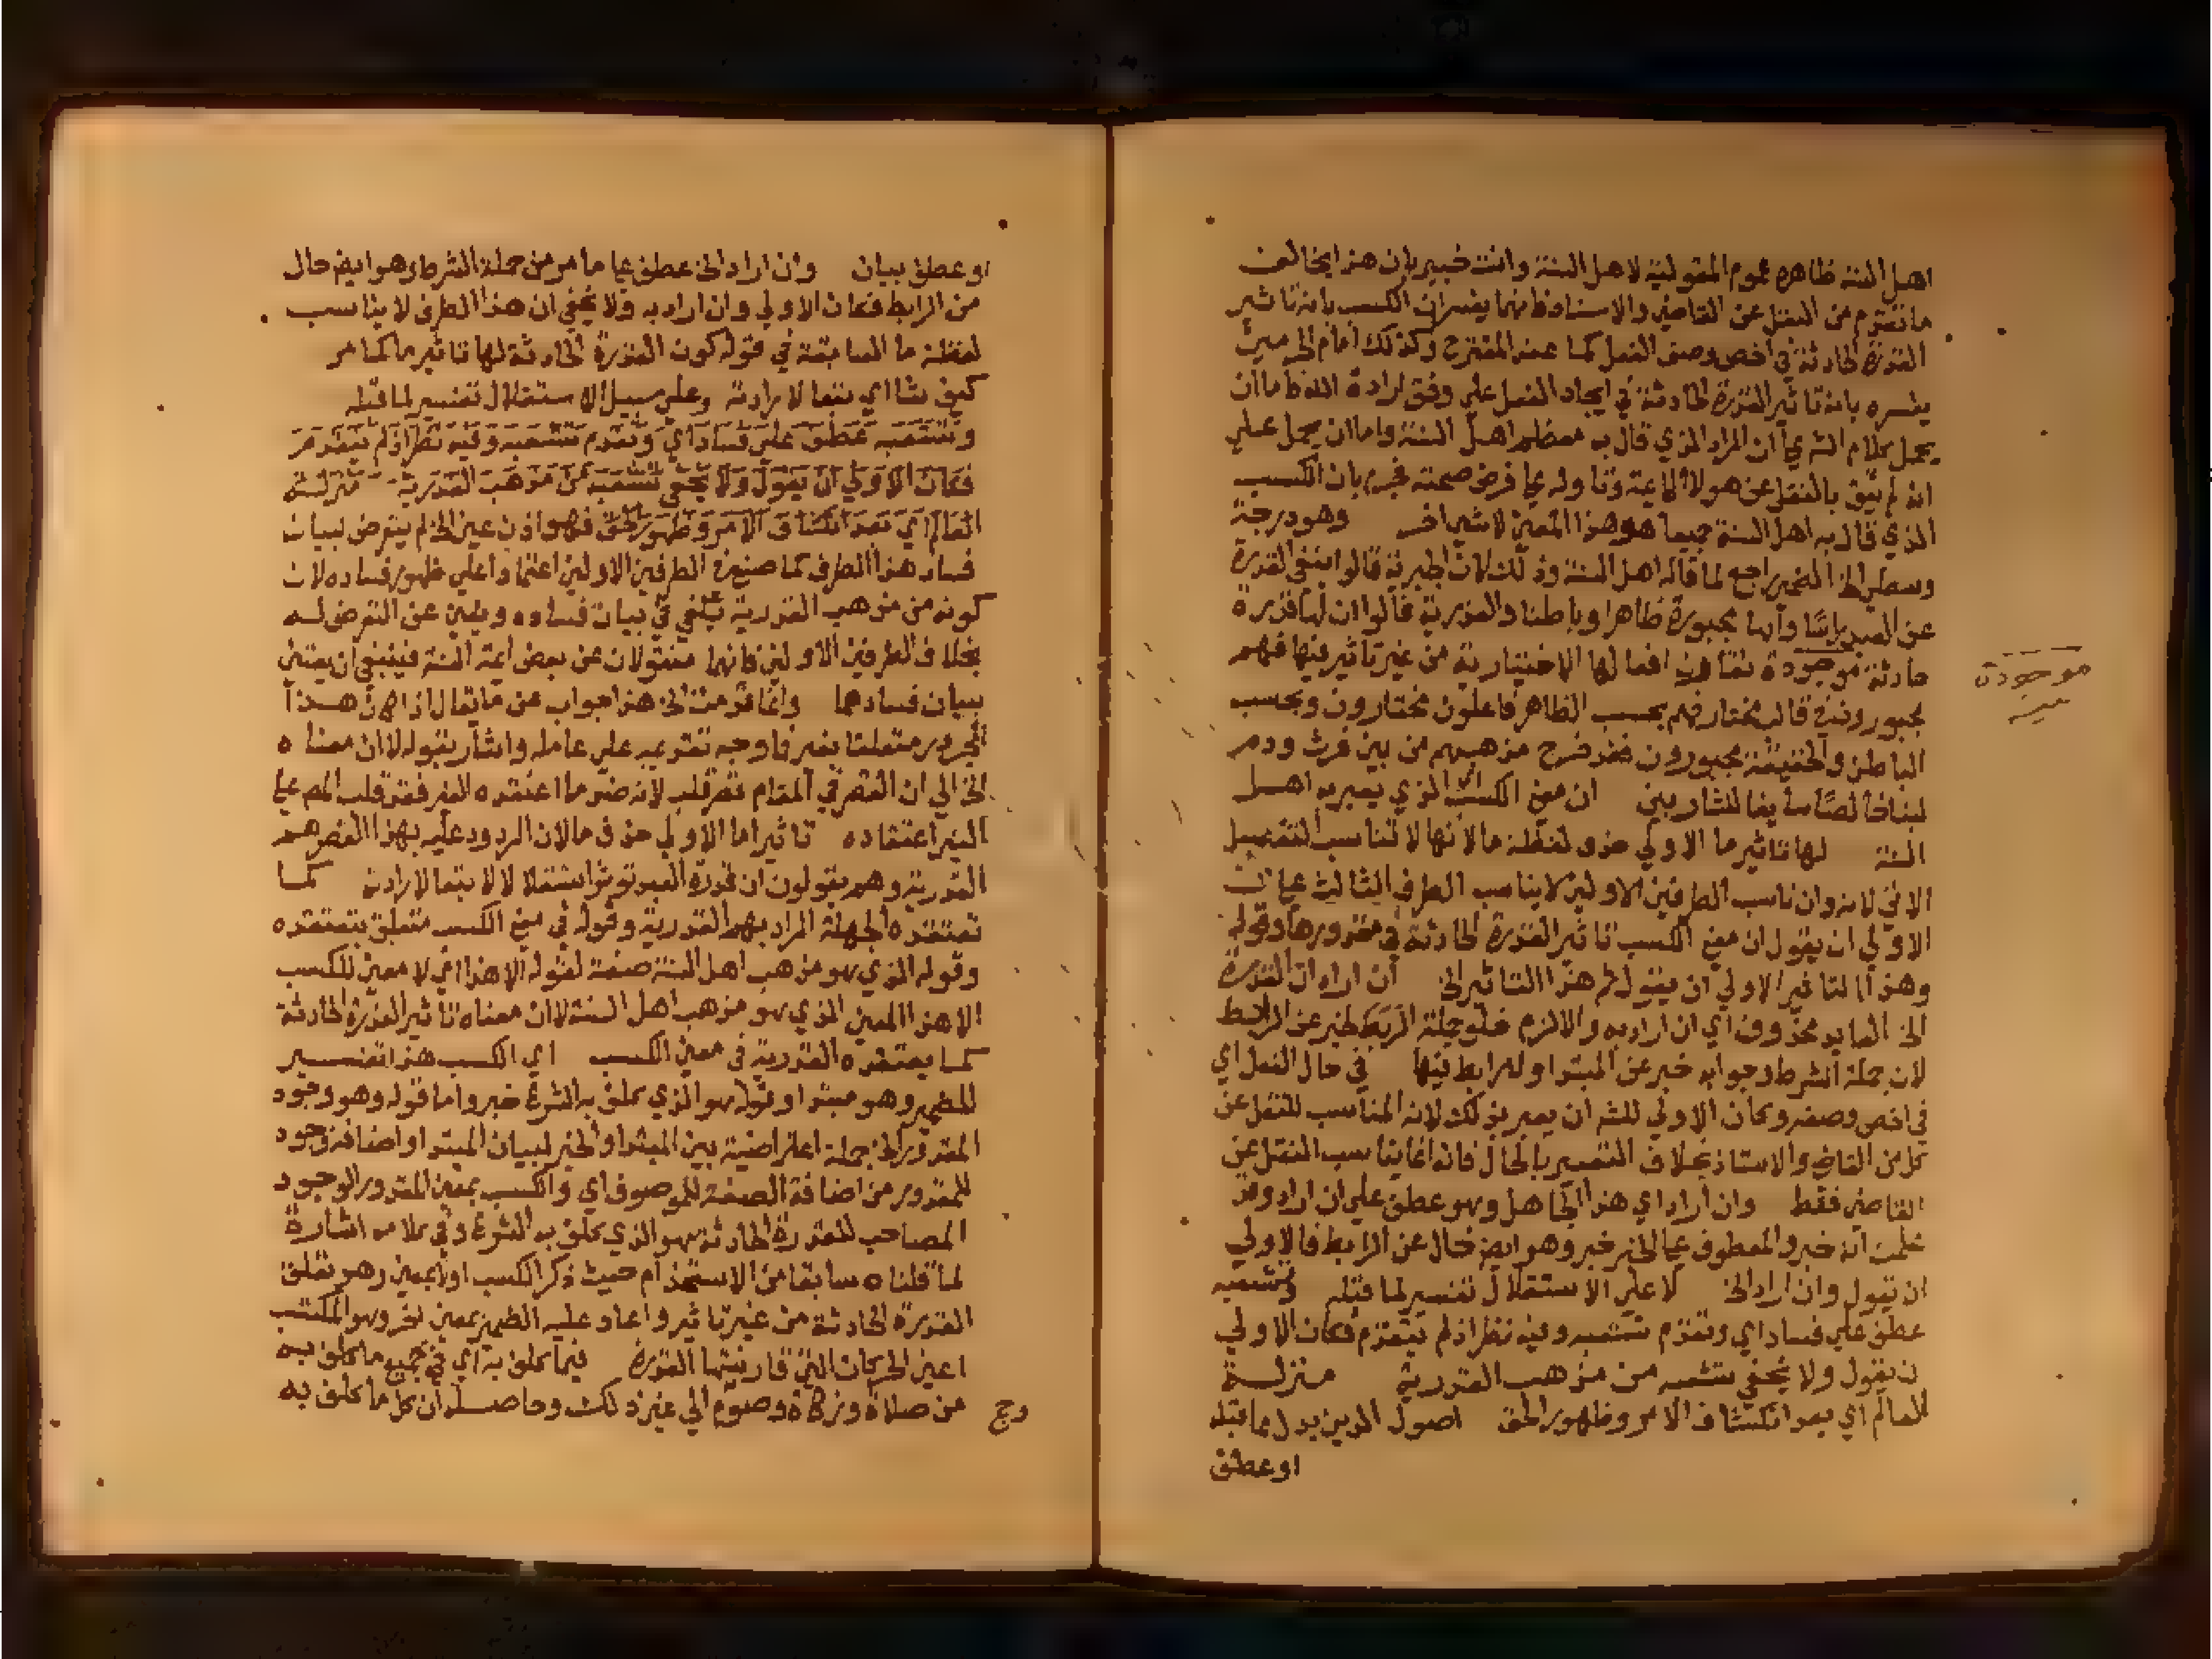 اهل السنة ظاهره عموم المقولية لاهل السنة وانت خبير بان هذا يخالف
ما تقدم من النقل عن القاضي والاستاذ فانهما يفسران الكسب بانه تاثير
القدرة الحادثة في اخص وصف الفعل كما عند المقترح وكذلك امام الحرمين
يفسره بانه تاثير القدرة الحادثة في ايجاد الفعل علي وفق ارادة الله فاما ان
يحمل كلام الشه علي ان المراد الذي قال به معظم اهل السنة واما ان يحمل علي
انه لم يثق بالنقل عن هولا الايمة وتاوله علي فرض صحته فجزم بان الكسب
الذي قال به اهل السنة جميعا هو هذا المعني لا شي اخر وهو درجة
وسطي الخ الضمير راجع لما قاله اهل السنة وذلك لان الجبرية قالوا بنفي القدرة
عن العبد راسًا وانها مجبورة ظاهرا وباطنا والقدرية قالوا ان لها قدرة
حادثة موجودة تقارن افعالها الاختيارية من غير تاثير فيها فهم
موجودة
مجبورون في قالب مختار فهم بحسب الظاهر فاعلون مختارون وبحسب
الباطن والحقيقة مجبورون فقد خرج مذهبهم من بين فرث ودم
لبنا خالصًا سايغا للشاربين ان معني الكسب الذي يعبر به اهل
السنة لها تاثير ما الاولي حذف لفظة ما لانها لا تناسب التفصيل
الاتي لانه وان ناسب الطرفين الاولين لا يناسب الطرف الثالث علي ان
الاولي ان يقول ان معني الكسب تاثير القدرة الحادثة في مقدورها وقوله
وهذا التاثير الاولي ان يقول ثم هذا التاثير الخ ان اراد ان القدرة
الخ العايد محذوف اي ان اراد به والا لزم خلو جملة الربط لخبر عن الرابط
لان جملة الشرط وجوابه خبر عن المبتدا ولا رابط فيها في حال الفعل اي
في اخص وصفه وكان الاولي للشه ان يعبر بذلك لانه المناسب للنقل عن
كل من القاضي والاستاذ بخلاف التعبير بالحال فانه انما يناسب النقل عن
القاضي فقط وان اراد اي هذا الجاهل وهو عطف علي ان اراد وقد
علمت انه خبر والمعطوف علي الخبر خبر وهو ايضا خال عن الرابط فالاولي
ان يقول وان اراد الخ لا علي الاستقلال تفسير لما قبله وتشعبه
عطف علي فساد اي وتقدم تشعبه وفيه نظر اذ لم يتقدم فكان الاولي
ن يقول ولا يخفي تشعبه من مذهب القدرية منزلة
للعالم اي بعد انكشاف الامر وظهور الحق اصول الدين بدل مما قبله
او عطف
او عطف بيان وان اراد الخ عطف علي ما مر من جملة الشرط وهو ايضا خال
من الرابط فكان الاولي وان اراد به ولا يخفي ان هذا الطرف لا يناسب
لفظة ما السابقة في قوله كون القدرة الحادثة لها تاثير ما كما مر
كيف شا اي تبعا لارادته وعلي سبيل الاستقلال تفسير لما قبله
وتشعبه عطف علي فساد اي وتقدم تشعبه وفيه نظر اذ لم يتقدم
فكان الاولي ان يقول ولا يخفي تشعبه من مذهب القدرية منزلة
العالم اي بعد انكشاف الامر وظهور الحق فهو اذن غير الخ لم يتعرض لبيان
فساد هذا الطرف كما صنع في الطرفين الاولين اعتمادا علي ظهور فساده لان
كونه من مذهب القدرية يكفي في بيان فساده ويغني عن التعرض له
بخلاف الطرفين الاولين فانهما منقولان عن بعض ايمة السنة فينبغي ان يعتني
ببيان فسادهما وانما قدمت الخ هذا جواب عن ما يقال اذا كان هذا
المجرور متعلقا بغير فما وجه تقديمه علي عامله واشار بقوله لا ان معناه
الخ الي ان القصر في المقام قصر قلب لانه ضد ما اعتقده الغير فقد قلب المص علي
الغير اعتقاده تاثير اما الاولي حذف ما لان المردود عليه بهذا القصر هم
القدرية وهم يقولون ان قدرة العبد توثر استقلالا لا تبعا لارادته كما
تعتقده الجهلة المراد بهم القدرية وقوله في معني الكسب متعلق بتعتقده
وقوله الذي هو مذهب اهل السنة صفة لقوله الا هذا اي لا معني للكسب
الا هذا المعني الذي هو مذهب اهل السنة لا ان معناه تاثير القدرة الحادثة
كما يعتقده القدرية في معني الكسب اي الكسب هذا تفسير
للضمير وهو مبتدا وقوله هو الذي كلف به الشرع خبر واما قوله وهو وجود
المقدور الخ جملة اعتراضية بين المبتدا والخبر لبيان المبتدا واضافة وجود
للمقدور من اضافة الصفة للموصوف اي والكسب بمعني المقدور الموجود
المصاحب للقدرة الحادثة هو الذي كلف به الشرع وفي كلامه اشارة
لما قلناه سابقا من الاستخدام حيث ذكر الكسب اولا بمعني وهو تعلق
القدرة الحادثة من غير تاثير واعاد عليه الضمير بمعني اخر وهو المكتسب
اعني الحركات التي قارنتها القدرة فيما كلف به اي في جميع ما كلف به
من صلاة وزكاة وصوم الي غير ذلك وحاصله ان كل ما كلف به
وحج